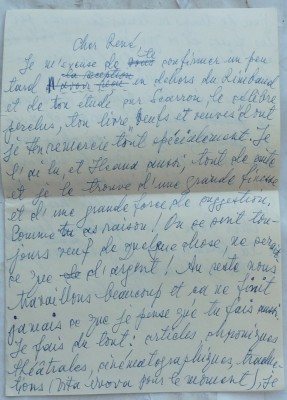 Cher René,
Je m'excuse de te confirmer un peu
tard la réception en dehors du Rimbaud
et de ton étude sur Scarron, le célèbre
perclus, ton livre "Veufs et veuves" dont
je te remercie tout spécialement. Je
l'ai lu, et Iliana aussi, tout de suite
et je le trouve d'une grande finesse
et d'une grande force de suggestion.
Comme tu as raison ! On se sent tou-
jours veuf de quelque chose, ne serait-
ce que de l'argent ! Au reste nous
travaillons beaucoup et ça ne finit
jamais ce que je pense que tu fais aussi.
Je fais du tout : articles, chroniques
théâtrales, cinématographiques, traduc-
tions (Vita Nuova pour le moment), je